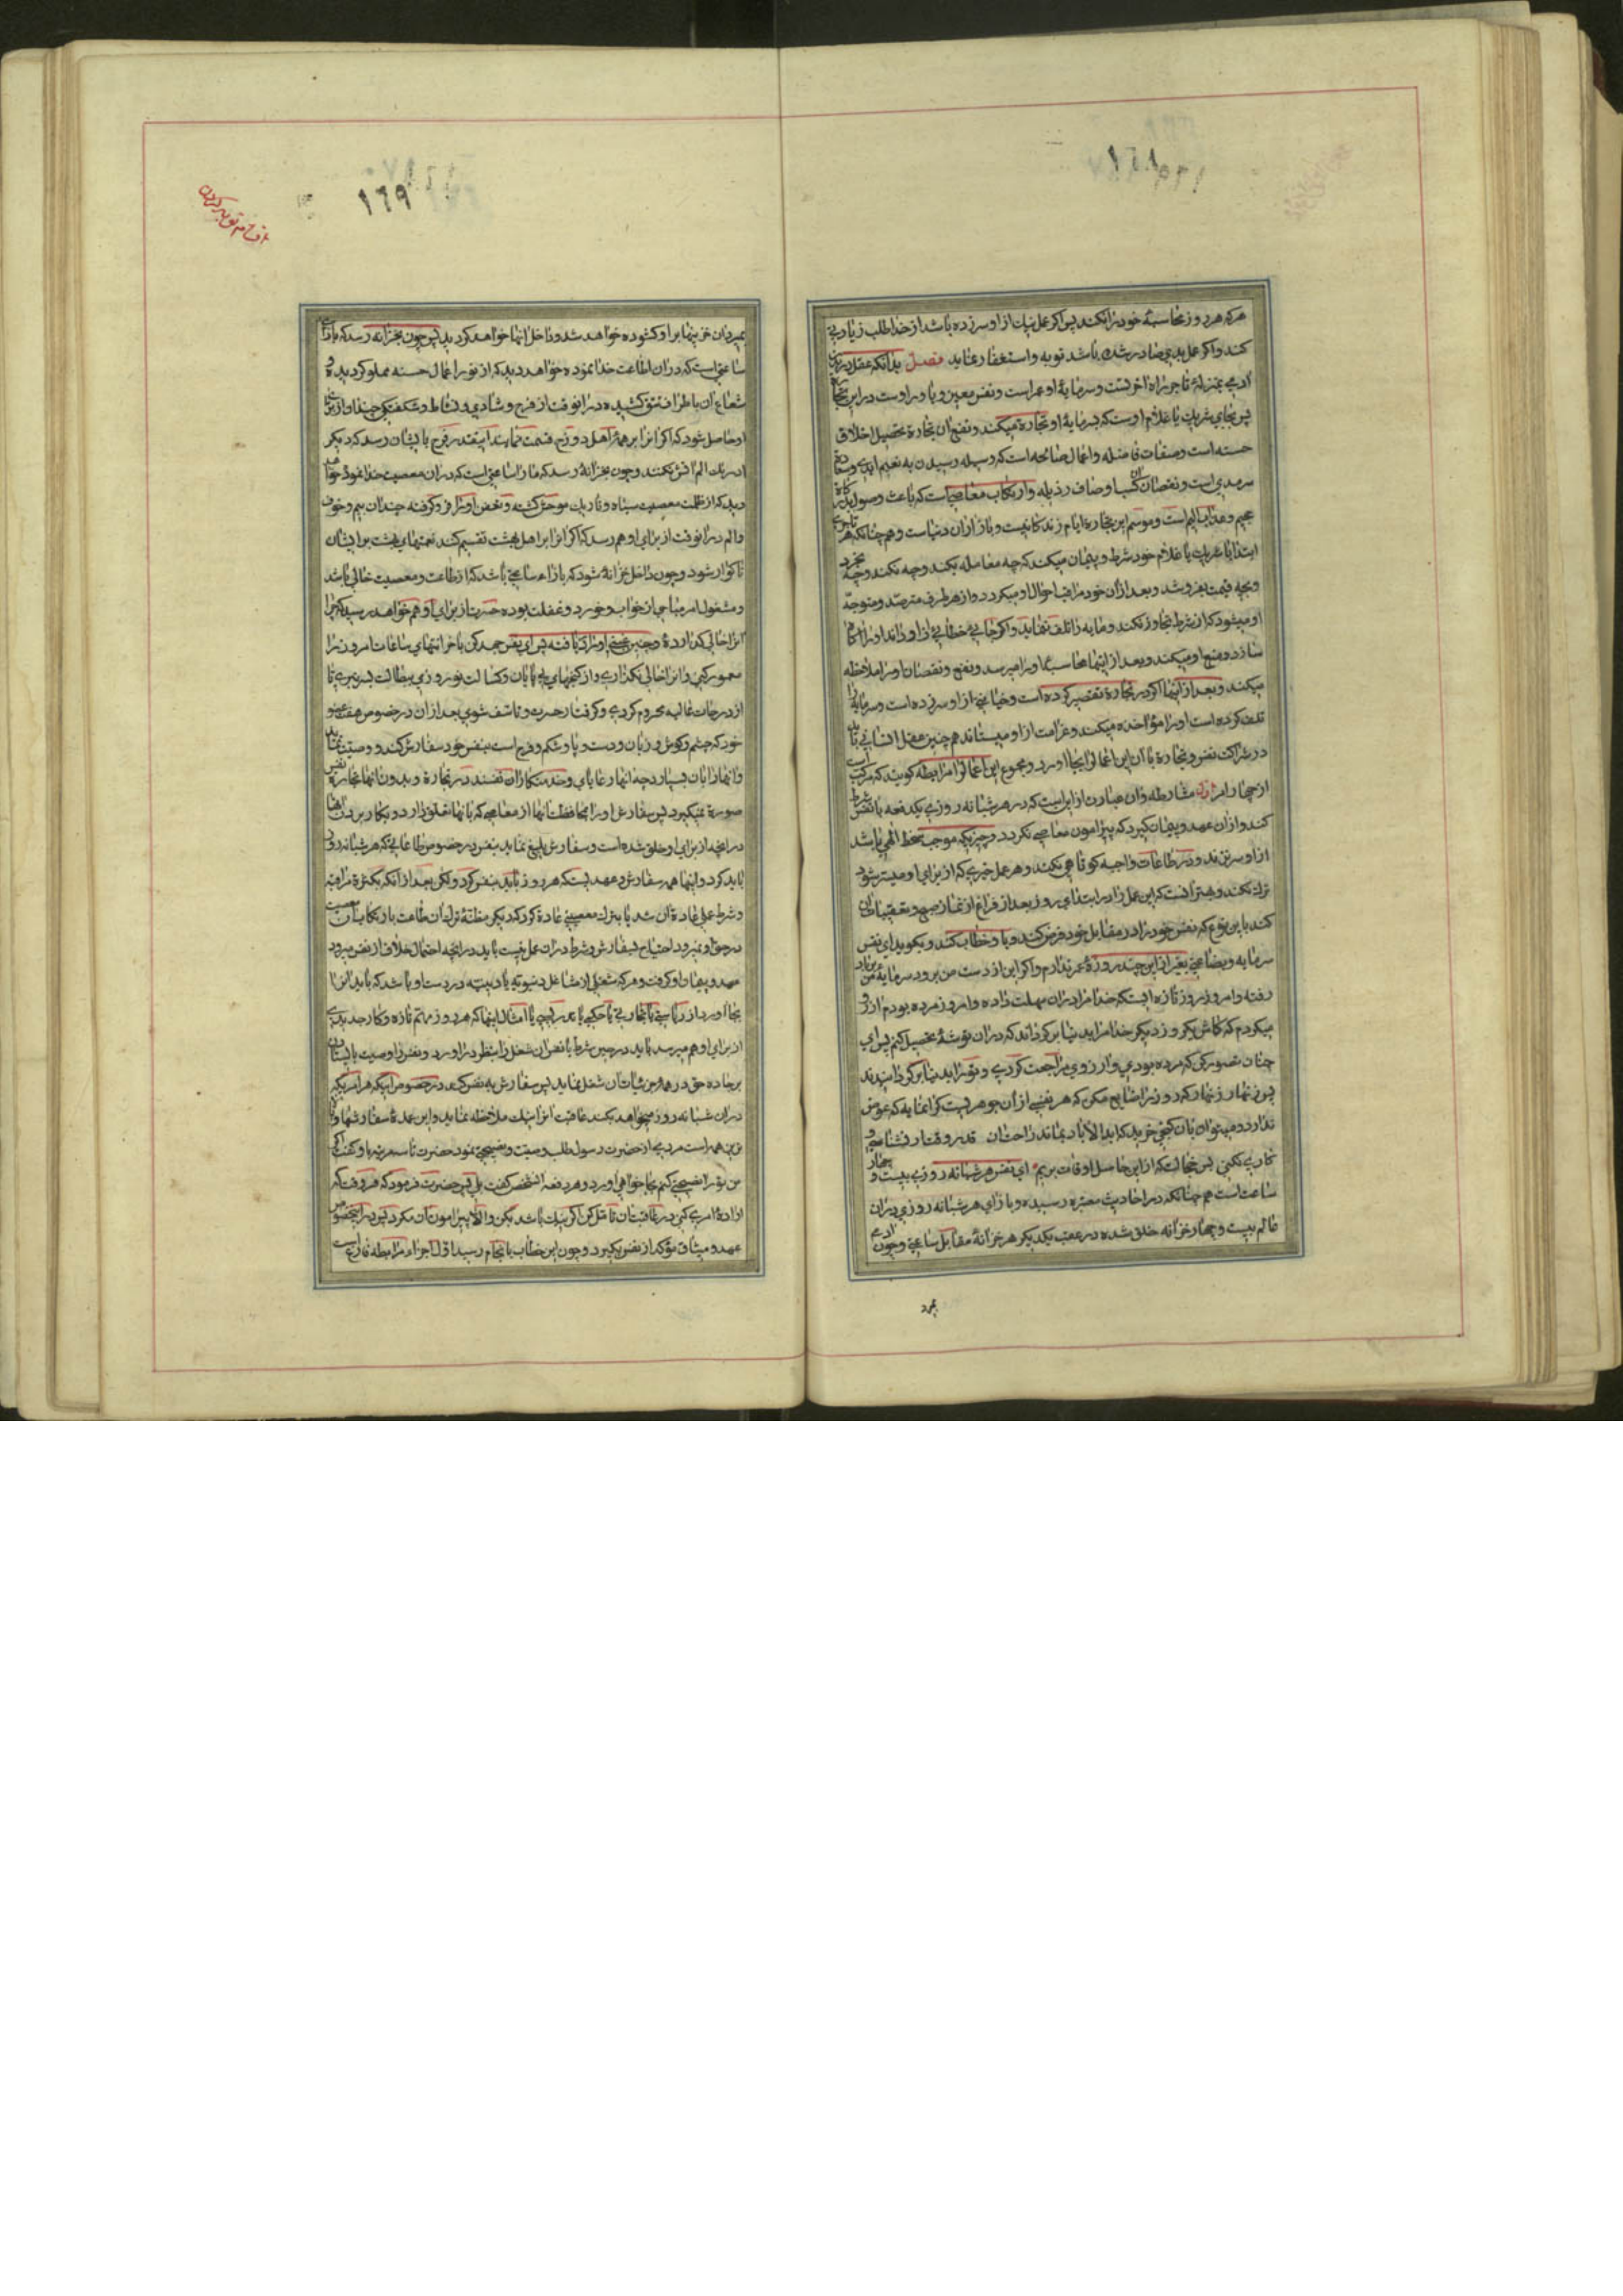 ١٦٨
هر که هر روز محاسبهٔ خود را نکند پس اگر عمل نیك از او سرزده باشد از خدا طلب زیادتی
کند و اگر عمل بدی صادر شده باشد توبه و استغفار نماید فصل بدانکه عقل در
آدمی بمنزلهٔ تاجر راه آخرتست و سرمایهٔ او عمر است و نفس معین و یاور اوست در این تجارة
پس بجای شریك یا غلام اوست که بسرمایهٔ او تجارة میکند و نفع ان تجارة تحصیل اخلاق
حسنه است و صفات فاضله و اعمال صالحه است که وسیله رسیدن به نعیم ابدی و سعادة
سرمدی است و نقصان ان کسب اوصاف رذیله و ارتکاب معاصیاست که باعث وصول
جحیم و عذاب الیم است و موسم این تجارة ایام زندگانیست و بازار ان دنیاست و هم چنانکه هر تاجری
ابتدا با شریك یا غلام خود شرط و پیمان میکند که چه معامله بکند و چه نکند و چه بخرد
و بچه قیمت بفروشد و بعد از آن خود مراقب احوال او میگردد و از هر طرف مترصد و متوجه
او میشود که از شرط تجاوز نکند و مایه را تلف ننماید و اگر جائی خطائی از او داند او را اکاه
سازد و منع او میکند و بعد از اینها محاسبه با او را میرسد و نفع و نقصان او را ملاحظه
میکند و بعد از اینها اگر در تجارة تقصیر کرده است و خیانتی از او سرزده است و سرمایه را
تلف کرده است او را مؤاخذه میکند و غرامت از او میستاند هم چنین عقل انسانی باید
در شراکت نفس و تجارة با آن این اعمال را بجا آورد و مجموع این اعمال را مرابطه گویند که مرکب است
از چهار امر اول مشارطه و ان عبارت از این است که در هر شبانه روزی یك دفعه با نفس شرط
کند و از ان عهد و پیمان گیرد که پیرامون معاصی نگردد و چیزیکه موجب سخط الهی باشد
از او سر نزند و در طاعات واجبه کوتاهی نکند و هر عمل خیری که از برای او میسر شود
ترك نکند و بهتر انست که این عمل را در ابتدای روز بعد از فراغ از نماز صبح و تعقیبات ان
کند باین نوع که نفس خود را در مقابل خود فرض کند و با و خطاب کند و بگوید ای نفس
سرمایه و بضاعتی بغیر از این چند روزهٔ عمر ندارم و اگر این از دست من برود سرمایهٔ من برباد
رفته و امروز روز تازه ایست که خدا مرا در ان مهلت داده و امروز مرده بودم ارزو
میکردم که کاش یکروز دیگر خدا مرا بدنیا برگرداند که در ان توشهٔ تحصیل کنم پس ای
چنان تصور کن که مرده بودی و ارزوی مراجعت کردی و تو را بدنیا برگردانیدند
پس زنهار زنهار که روز را ضایع مکن که هر نفسی از ان جوهریست گرانمایه که عوض
ندارد و میتوان بان گنجی خرید که ابد الآباد بماند راحتان قدر وقت ار نشناسی و
کاری نکنی بس خجالت که از این حاصل اوقات بریم ای نفس هر شبانه روزی بیست و چهار
ساعت است هم چنانکه در احادیث معتبره رسیده و بازای هر شبانه روزی در ان
عالم بیست و چهار خزانه خلق شده در عقب یکدیگر هر خزانهٔ مقابل ساعتی و چون آدمی
بمیرد
١٦٩
بمیرد ان خزینها بر او گشوده خواهد شد و داخل انها خواهد گردید پس چون بخزانه رسد که بازای
ساعتی است که در ان اطاعت خدا نموده خواهد دید که از نور اعمال حسنه مملو گردیده و
شعاع ان باطراف تتق کشیده در انوقت از فرح و شادی و نشاط و شکفتگی چندان از برای
او حاصل شود که اگر انرا بر همهٔ اهل دوزخ قسمت نمایند اینقدر فرح بایشان رسد که دیگر
ادراك الم اتش نکنند و چون بخزانهٔ رسد که بازا ساعتی است که در ان معصیت خدا نموده خواهد
دید که از ظلمت معصیت سیاه و تاریك موحش گشته و تعفن او را فرو گرفته چندان بیم و خوف
و الم در انوقت از برای او هم رسد که اگر انرا بر اهل بهشت تقسیم کنند نعمتهای بهشت بر ایشان
ناگوار شود و چون داخل خزانهٔ شود که بازاء ساعتی باشد که از طاعت و معصیت خالی باشد
و مشغول امر مباحی از خواب و خورد و غفلت بوده حسرت از برای او هم خواهد رسید که چرا
انرا خالی گذارده و چنین غبنی او را دریافته پس ای نفس جهد کن تا خزانهای ساعات امروز را
معمور کنی و انرا خالی نگذاری و از گنجهای بی پایان و کسالت نورزی ببطالت بسر نبری تا
از درجات عالیه محروم گردی و گرفتار حسرت و تاسف شوی بعد از ان در خصوص هفت عضو
خود که چشم و گوش و زبان و دست و پا و شکم و فرج است بنفس خود سفارش کند و وصیت نماید
و انها را بان بسپارد چه انها رعایای و خدمتکاران نفسند در تجارة و بدون انها تجارة نفس
صورة نمیگیرد پس سفارش او را بمحافظت انها از معاصی که بانها تعلق دارد و بکار بردن انها
در انچه از برای او خلق شده است و سفارش بلیغ نماید بنفس در خصوص طاعاتی که هر شبانه روز
باید کرد و اینها همه سفارش و عهدیست که هر روز باید بنفس کرد و لکن بعد از انکه بکثرة مراقبه
و شرط عمل عادة ان شد یا بترك معصیتی عادة کرد که دیگر مظنهٔ ترك ان طاعت یا ارتکاب ان معصیت
در حق او نمیرود احتیاج بسفارش و شرط در ان عمل نیست باید در انچه احتمال خلاف از نفس میرود
عهد و پیمان او گرفت و هر که شغلی از مشاغل دنیویه یا دینیه در دست او باشد که باید انرا
بجا آورد از ریاستی یا تجارتی یا حکمی یا تدریسی یا امثال اینها که هر روز مهم تازه و کار جدیدی
از برای او هم میرسد باید در حین شرط با نفس ان شغل را بنظر در آورد و نفس را وصیت بایستادن
بر جاده حق در همهٔ جزئیات ان شغل نماید پس سفارش به نفس کند در خصوص اینکه هر امریکه
در ان شبانه روز میخواهد بکند عاقبت انرا نیك ملاحظه نماید و این عمدهٔ سفارشها و
ترین همه است مردی از حضرت رسول طلب وصیت و نصیحتی نمود حضرت تا سه مرتبه باو گفت اگر
من تو را نصیحتی کنم بجا خواهی آورد و هر دفعه انشخص گفت بلی پس حضرت فرمود که هر وقت که
ارادهٔ امری کنی در عاقبت ان تامل کن اگر نیك باشد بکن و الا پیرامون ان مگرد پس در اینخصوص
عهد و میثاق مؤکد از نفس بگیرد و چون این خطاب بانجام رسید اول اجزاء مرابطه فارغ است